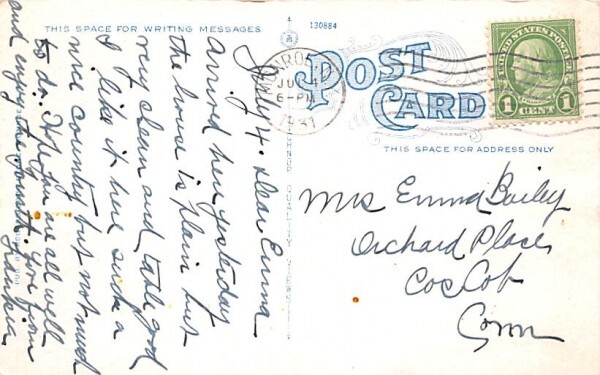 THIS SPACE FOR WRITING MESSAGES
130884
POST
CARD
UNITED STATES POSTAGE
1 CENT 1
6 PM
1931
THIS SPACE FOR ADDRESS ONLY
July 4. Dear Emma
Arrived here yesterday
the house is plain but
very clean and table good
I like it here such a
nice country but not much
to do. Hope you are all well
and enjoy the Fourth. Love from
Mrs Emma Bailey
Orchard Place
Cos Cob
Conn